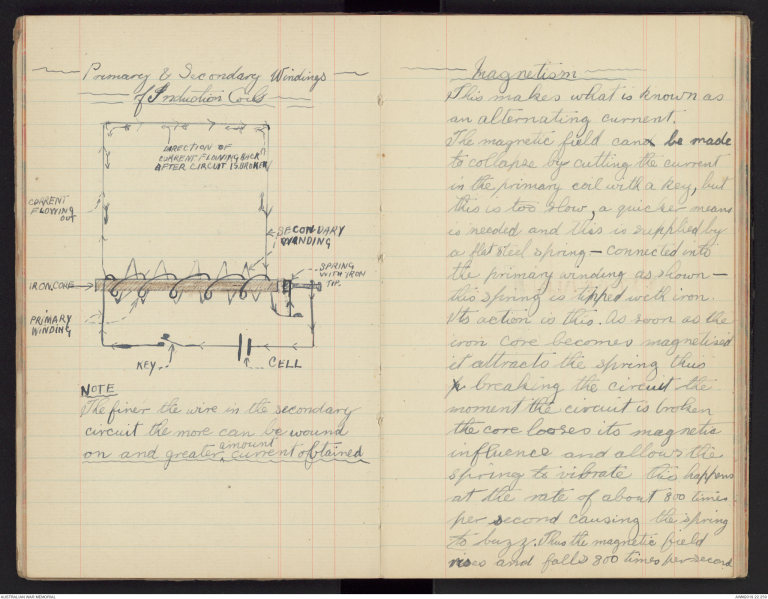 Primary & Secondary Windings
of Induction Coils
DIRECTION OF
CURRENT FLOWING BACK
AFTER CIRCUIT IS BROKEN
CURRENT
FLOWING
OUT
SECONDARY
WINDING
SPRING
WITH IRON
TIP.
IRON CORE
PRIMARY
WINDING
KEY
CELL
NOTE
The finer the wire in the secondary
circuit the more can be wound
amount
on and greater current obtained
Magnetism
This makes what is known as
an alternating current.
The magnetic field can be made
to collapse by cutting the current
in the primary coil with a key, but
this is too slow, a quicker means
is needed and this is supplied by
a flat steel spring – connected into
the primary winding as shown –
this spring is tipped with iron.
Its action is this. As soon as the
iron core becomes magnetised
it attracts the spring thus
breaking the circuit the
moment the circuit is broken
the core looses its magnetic
influence and allows the
spring to vibrate this happens
at the rate of about 800 times
per second causing the spring
to buzz. Thus the magnetic field
rises and falls 800 times per second
AUSTRALIAN WAR MEMORIAL